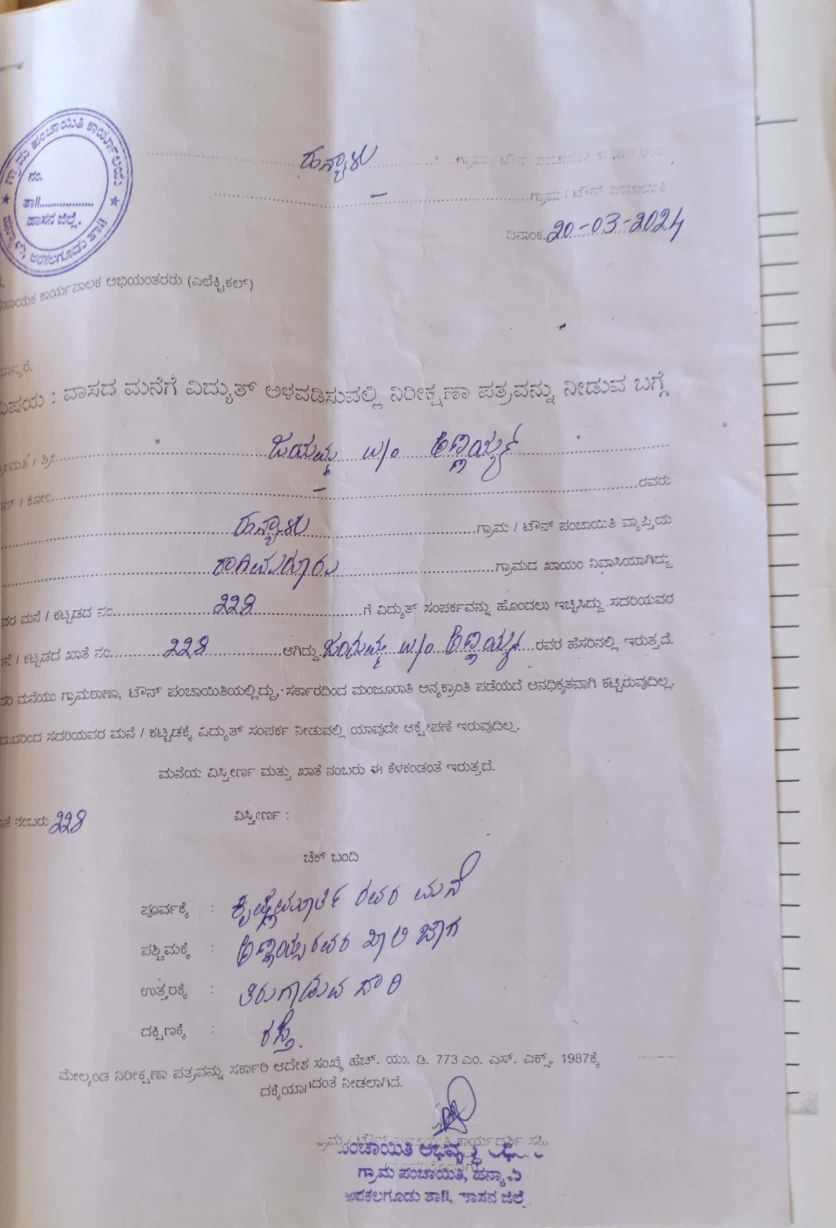 ಗ್ರಾಮ ಪಂಚಾಯಿತಿ ಕಾರ್ಯಾಲಯ
ನಂ.
ತಾ||
ಹಾಸನ ಜಿಲ್ಲೆ.
ಅರಕಲಗೂಡು ತಾ||
ಹನ್ಯಾಳು ಗ್ರಾಮ / ಟೌನ್ ಪಂಚಾಯಿತಿ
ಗ್ರಾಮ / ಟೌನ್ ಪಂಚಾಯಿತಿ
ದಿನಾಂಕ. 20-03-2024
ಕಾರ್ಯಪಾಲಕ ಅಭಿಯಂತರರು (ಎಲೆಕ್ಟ್ರಿಕಲ್)
ವಿಷಯ : ವಾಸದ ಮನೆಗೆ ವಿದ್ಯುತ್ ಅಳವಡಿಸುವಲ್ಲಿ ನಿರೀಕ್ಷಣಾ ಪತ್ರವನ್ನು ನೀಡುವ ಬಗ್ಗೆ
/ ಶ್ರೀ. ಜಯಮ್ಮ w/o ಅಣ್ಣಯ್ಯ
/ ಕೋಂ. – ರವರು
ಹನ್ಯಾಳು ಗ್ರಾಮ / ಟೌನ್ ಪಂಚಾಯಿತಿ ವ್ಯಾಪ್ತಿಯ
ಗ್ರಾಮದ ಖಾಯಂ ನಿವಾಸಿಯಾಗಿದ್ದು
ಮನೆ / ಕಟ್ಟಡದ ನಂ. 228 ಗೆ ವಿದ್ಯುತ್ ಸಂಪರ್ಕವನ್ನು ಹೊಂದಲು ಇಚ್ಛಿಸಿದ್ದು ಸದರಿಯವರ
/ ಕಟ್ಟಡದ ಖಾತೆ ನಂ. 228 ಆಗಿದ್ದು ಜಯಮ್ಮ w/o ಅಣ್ಣಯ್ಯ ರವರ ಹೆಸರಿನಲ್ಲಿ ಇರುತ್ತದೆ.
ಮನೆಯು ಗ್ರಾಮಠಾಣಾ, ಟೌನ್ ಪಂಚಾಯಿತಿಯಲ್ಲಿದ್ದು, ಸರ್ಕಾರದಿಂದ ಮಂಜೂರಾತಿ ಅನ್ಯಕ್ರಾಂತಿ ಪಡೆಯದೆ ಅನಧಿಕೃತವಾಗಿ ಕಟ್ಟಿರುವುದಿಲ್ಲ.
ಸದರಿಯವರ ಮನೆ / ಕಟ್ಟಡಕ್ಕೆ ವಿದ್ಯುತ್ ಸಂಪರ್ಕ ನೀಡುವಲ್ಲಿ ಯಾವುದೇ ಆಕ್ಷೇಪಣೆ ಇರುವುದಿಲ್ಲ.
ಮನೆಯ ವಿಸ್ತೀರ್ಣ ಮತ್ತು ಖಾತೆ ನಂಬರು ಈ ಕೆಳಕಂಡಂತೆ ಇರುತ್ತದೆ.
ನಂಬರು 228 ವಿಸ್ತೀರ್ಣ :
ಚೆಕ್ ಬಂದಿ
ಪೂರ್ವಕ್ಕೆ : ಕೃಷ್ಣೇಮೂರ್ತಿ ರವರ ಮನೆ
ಪಶ್ಚಿಮಕ್ಕೆ : ಅಣ್ಣಯ್ಯರವರ ಖಾಲಿ ಜಾಗ
ಉತ್ತರಕ್ಕೆ : ತಿರುಗಾಡುವ ದಾರಿ
ದಕ್ಷಿಣಕ್ಕೆ : ರಸ್ತೆ.
ಮೇಲ್ಕಂಡ ನಿರೀಕ್ಷಣಾ ಪತ್ರವನ್ನು ಸರ್ಕಾರಿ ಆದೇಶ ಸಂಖ್ಯೆ ಹೆಚ್. ಯು. ಡಿ. 773 ಎಂ. ಎಸ್. ಎಕ್ಸ್. 1987ಕ್ಕೆ
ನೀಡಲಾಗಿದೆ.
ಪಂಚಾಯಿತಿ
ಗ್ರಾಮ ಪಂಚಾಯಿತಿ, ಹನ್ಯಾಳು
ಅರಕಲಗೂಡು ತಾ||, ಹಾಸನ ಜಿಲ್ಲೆ